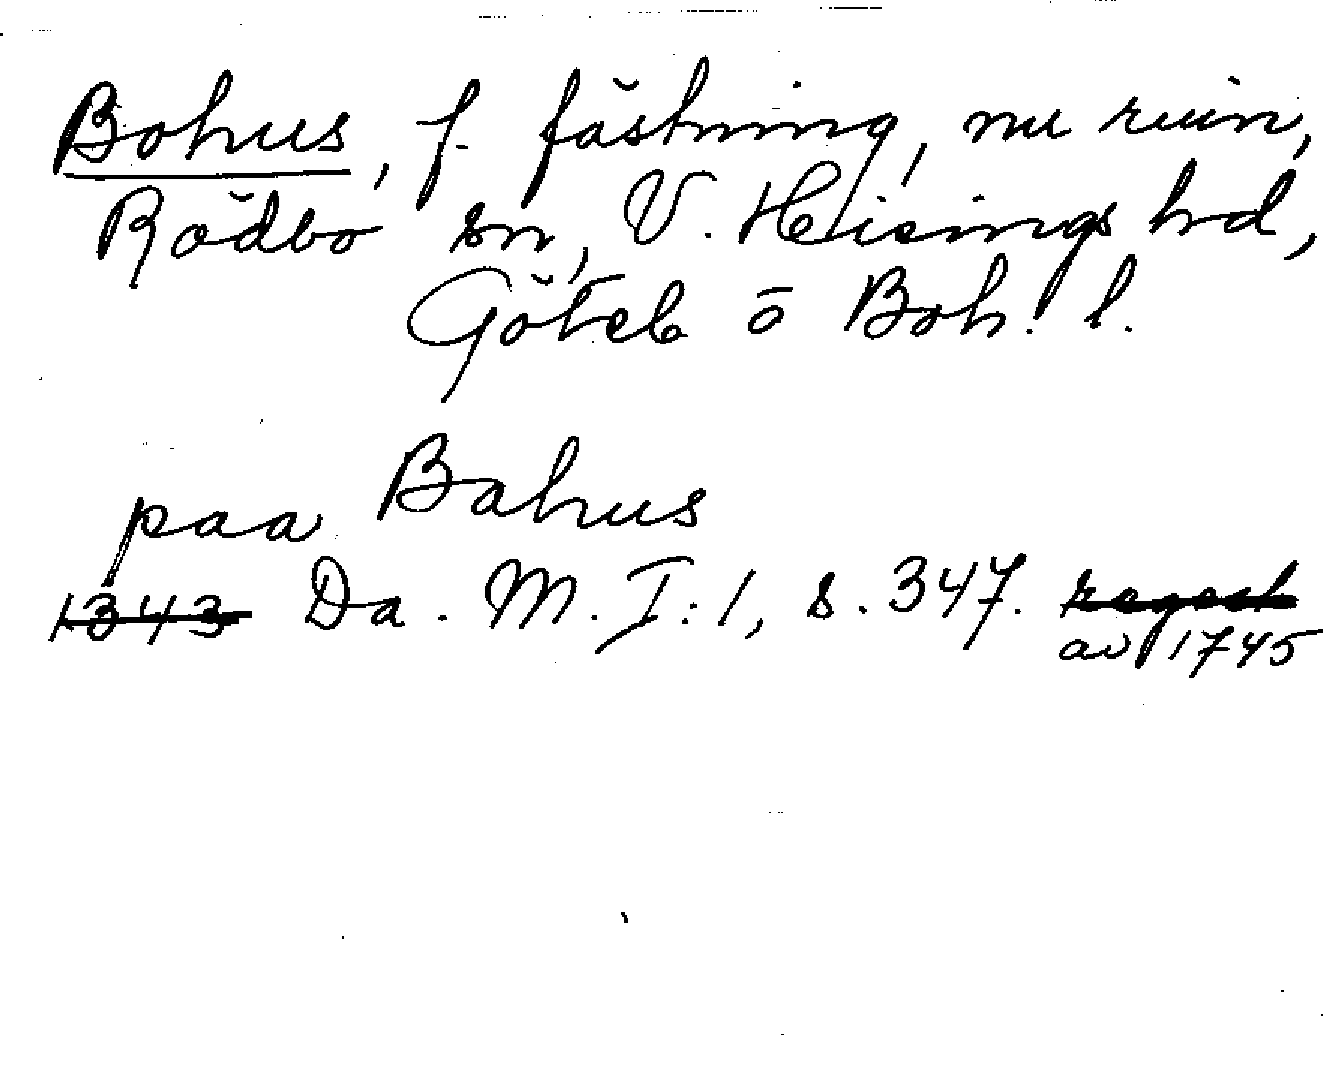 Bohus, f. fästning, nu ruin,
Rödbo sn, V. Hisings hd,
Göteb o Boh. l.
paa Bahus
1343 Da. M. I:1, s. 347. regest
av 1745